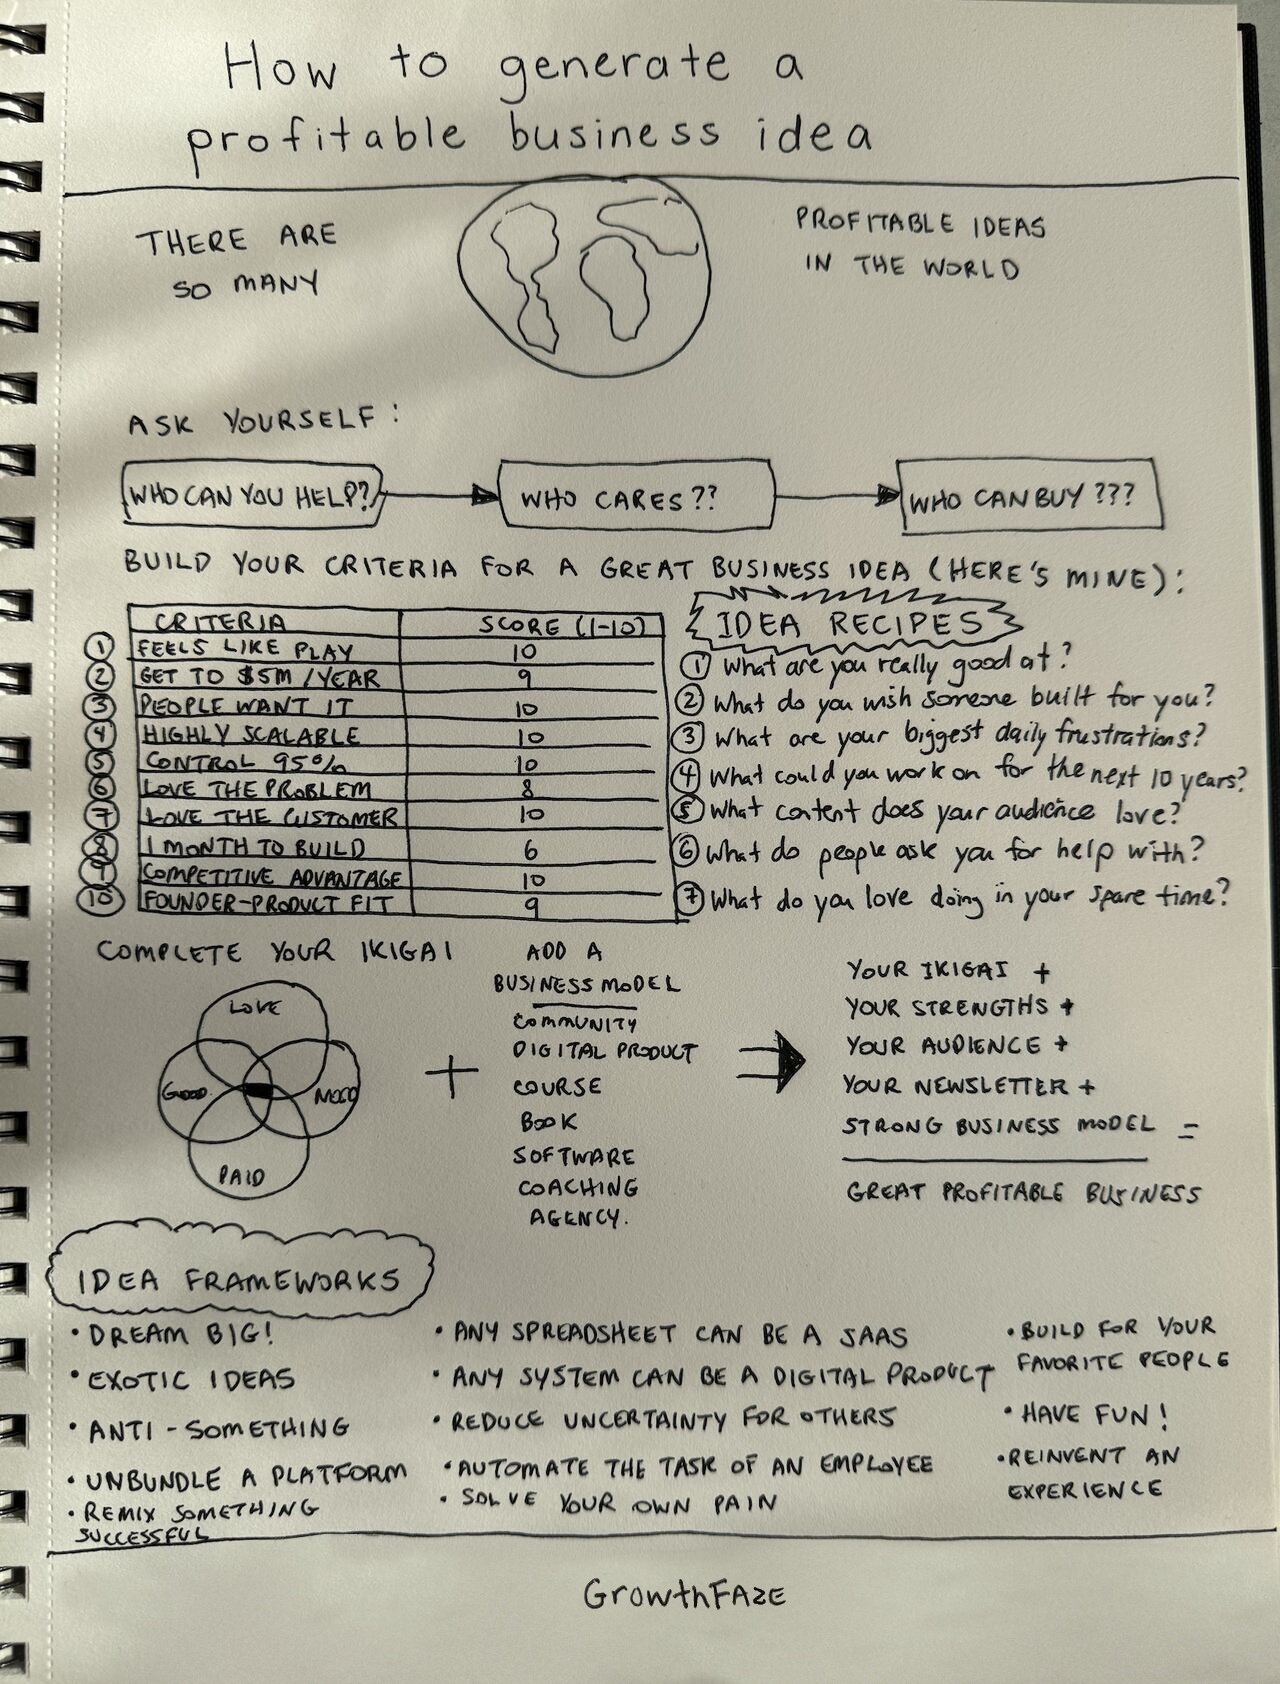 How to generate a
profitable business idea
THERE ARE
SO MANY
PROFITABLE IDEAS
IN THE WORLD
ASK YOURSELF:
WHO CAN YOU HELP?
WHO CARES??
WHO CAN BUY???
BUILD YOUR CRITERIA FOR A GREAT BUSINESS IDEA (HERE'S MINE):
CRITERIA SCORE (1-10)
1 FEELS LIKE PLAY 10
2 GET TO $5M/YEAR 9
3 PEOPLE WANT IT 10
4 HIGHLY SCALABLE 10
5 CONTROL 95% 10
6 LOVE THE PROBLEM 8
7 LOVE THE CUSTOMER 10
8 1 MONTH TO BUILD 6
9 COMPETITIVE ADVANTAGE 10
10 FOUNDER-PRODUCT FIT 9
IDEA RECIPES
1 What are you really good at?
2 What do you wish someone built for you?
3 What are your biggest daily frustrations?
4 What could you work on for the next 10 years?
5 What content does your audience love?
6 What do people ask you for help with?
7 What do you love doing in your spare time?
COMPLETE YOUR IKIGAI
LOVE
GOOD
NEED
PAID
+
ADD A
BUSINESS MODEL
COMMUNITY
DIGITAL PRODUCT
COURSE
BOOK
SOFTWARE
COACHING
AGENCY.
YOUR IKIGAI +
YOUR STRENGTHS +
YOUR AUDIENCE +
YOUR NEWSLETTER +
STRONG BUSINESS MODEL =
GREAT PROFITABLE BUSINESS
IDEA FRAMEWORKS
• DREAM BIG!
• EXOTIC IDEAS
• ANTI-SOMETHING
• UNBUNDLE A PLATFORM
• REMIX SOMETHING
SUCCESSFUL
• ANY SPREADSHEET CAN BE A SAAS
• ANY SYSTEM CAN BE A DIGITAL PRODUCT
• REDUCE UNCERTAINTY FOR OTHERS
• AUTOMATE THE TASK OF AN EMPLOYEE
• SOLVE YOUR OWN PAIN
• BUILD FOR YOUR
FAVORITE PEOPLE
• HAVE FUN!
• REINVENT AN
EXPERIENCE
GrowthFAZE